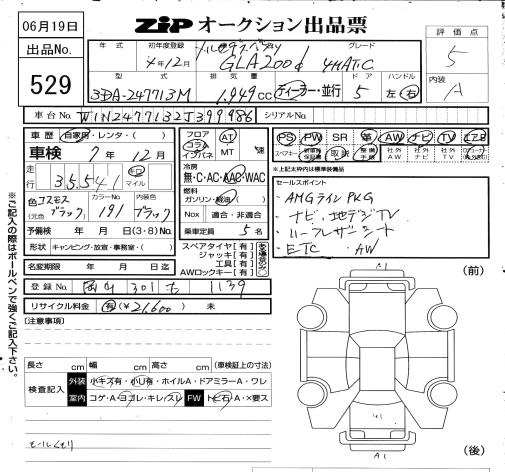 06月19日
ZIP オークション出品票
出品No.
529
年式 初年度登録 グレード
4年12月 GLA200d 4MATIC
型式 排気量 ドア ハンドル
3DA-247713M 1,949cc ディーゼル・並行 5 左 右
評価点
5
内装
A
車台No. W1N2477132J399986 シリアルNo.
車歴 自家用・レンタ・( )
車検 7年12月
走行 35,541 km マイル
色 コスモスブラック (元色) カラーNo. 191 内装色 ブラック
予備検 年 月 日(3・8)No.
形状 キャンピング・放宣・事務室・( )
名変期限 年 月 日迄
登録No. 岡山 301 1139
リサイクル料金 有 (¥21,600) 未
フロア コラム インパネ AT MT 速
冷房
無・C・AC・AAC・WAC
燃料
ガソリン・軽油( )
Nox 適合・非適合
乗車定員 5名
スペアタイヤ[有]
ジャッキ[有]
工具[有]
AWロックキー[有]
PS PW SR 革 AW ナビ TV エアB
スペアキー 新車時保証書 取説 整備手帳 社外AW 社外ナビ 社外TV
※上記太枠内は標準装備品
セールスポイント
・AMGライン PKG
・ナビ、地デジTV
・ハーフレザーシート
・ETC ・AW
[注意事項]
長さ cm 幅 cm 高さ cm (車検証上の寸法)
検査記入 外装 小キズ有・小U有・ホイルA・ドアミラーA・ワレ
室内 コゲA・ヨゴレ・キレ・スレ FW トビ石A・×要ス
モールくもり
(前)
(後)
A1
A1
※ご記入の際はボールペンで強くご記入下さい。